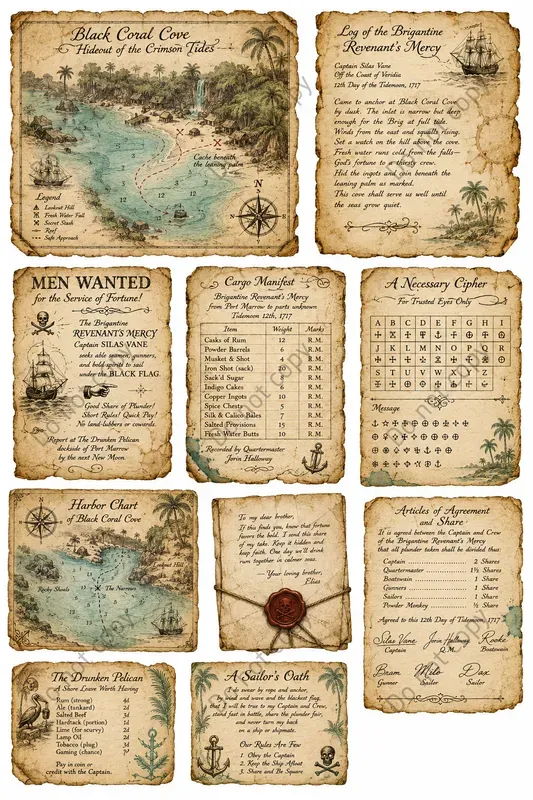 Black Coral Cove
Hideout of the Crimson Tides
Cache beneath
the leaning palm
Legend
Lookout Hill
Fresh Water Fall
Secret Stash
Reef
Safe Approach
N
Log of the Brigantine
Revenant's Mercy
Captain Silas Vane
Off the Coast of Veridia
12th Day of the Tidemoon, 1717
Came to anchor at Black Coral Cove
by dusk. The inlet is narrow but deep
enough for the Brig at full tide.
Winds from the east and squalls rising.
Set a watch on the hill above the cove.
Fresh water runs cold from the falls—
God's fortune to a thirsty crew.
Hid the ingots and coin beneath the
leaning palm as marked.
This cove shall serve us well until
the seas grow quiet.
MEN WANTED
for the Service of Fortune!
The Brigantine
REVENANT'S MERCY
Captain SILAS VANE
seeks able seamen, gunners,
and bold spirits to sail
under the BLACK FLAG.
Good Share of Plunder!
Short Rules! Quick Pay!
No land-lubbers or cowards.
Report at The Drunken Pelican
dockside of Port Marrow
by the next New Moon.
Cargo Manifest
Brigantine Revenant's Mercy
from Port Marrow to parts unknown
Tidemoon 12th, 1717
Item Weight Marks
Casks of Rum 12 R.M.
Powder Barrels 6 R.M.
Musket & Shot 4 R.M.
Iron Shot (sack) 20 R.M.
Sack'd Sugar 8 R.M.
Indigo Cakes 6 R.M.
Copper Ingots 10 R.M.
Spice Chests 5 R.M.
Silk & Calico Bales 7 R.M.
Salted Provisions 15 R.M.
Fresh Water Butts 10 R.M.
Recorded by Quartermaster
Jorin Halloway
A Necessary Cipher
For Trusted Eyes Only
A B C D E F G H I
J K L M N O P Q R
S T U V W X Y Z
Message
Harbor Chart
of Black Coral Cove
N
Lookout Hill
Rocky Shoals
The Narrows
To my dear brother,
If this finds you, know that fortune
favors the bold. I send this share
of my take. Keep it hidden and
keep faith. One day we'll drink
rum together in calmer seas.
— Your loving brother,
Elias
Articles of Agreement
and Share
It is agreed between the Captain and Crew
of the Brigantine Revenant's Mercy
that all plunder taken shall be divided thus:
Captain 2 Shares
Quartermaster 1½ Shares
Boatswain 1 Share
Gunners 1 Share
Sailors 1 Share
Powder Monkey ½ Share
Agreed to this 12th Day of Tidemoon, 1717
Silas Vane Jorin Halloway Rooke
Captain Q.M. Boatswain
Bram Milo Dax
Gunner Sailor Sailor
The Drunken Pelican
A Shore Leave Worth Having
Rum (strong) 4d
Ale (tankard) 2d
Salted Beef 3d
Hardtack (portion) 1d
Lime (for scurvy) 2d
Lamp Oil 2d
Tobacco (plug) 3d
Gaming (chance)
Pay in coin or
credit with the Captain.
A Sailor's Oath
I do swear by rope and anchor,
by wind and wave and the blackest flag,
that I will be true to my Captain and Crew,
stand fast in battle, share the plunder fair,
and never turn my back
on a ship or shipmate.
Our Rules Are Few
1. Obey the Captain
2. Keep the Ship Afloat
3. Share and Be Square
do not copy